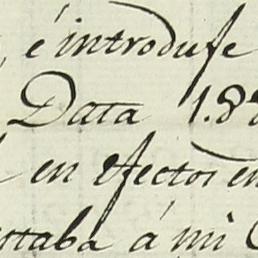 , é introduse
Data 1.8
en efectos en
estaba á mi